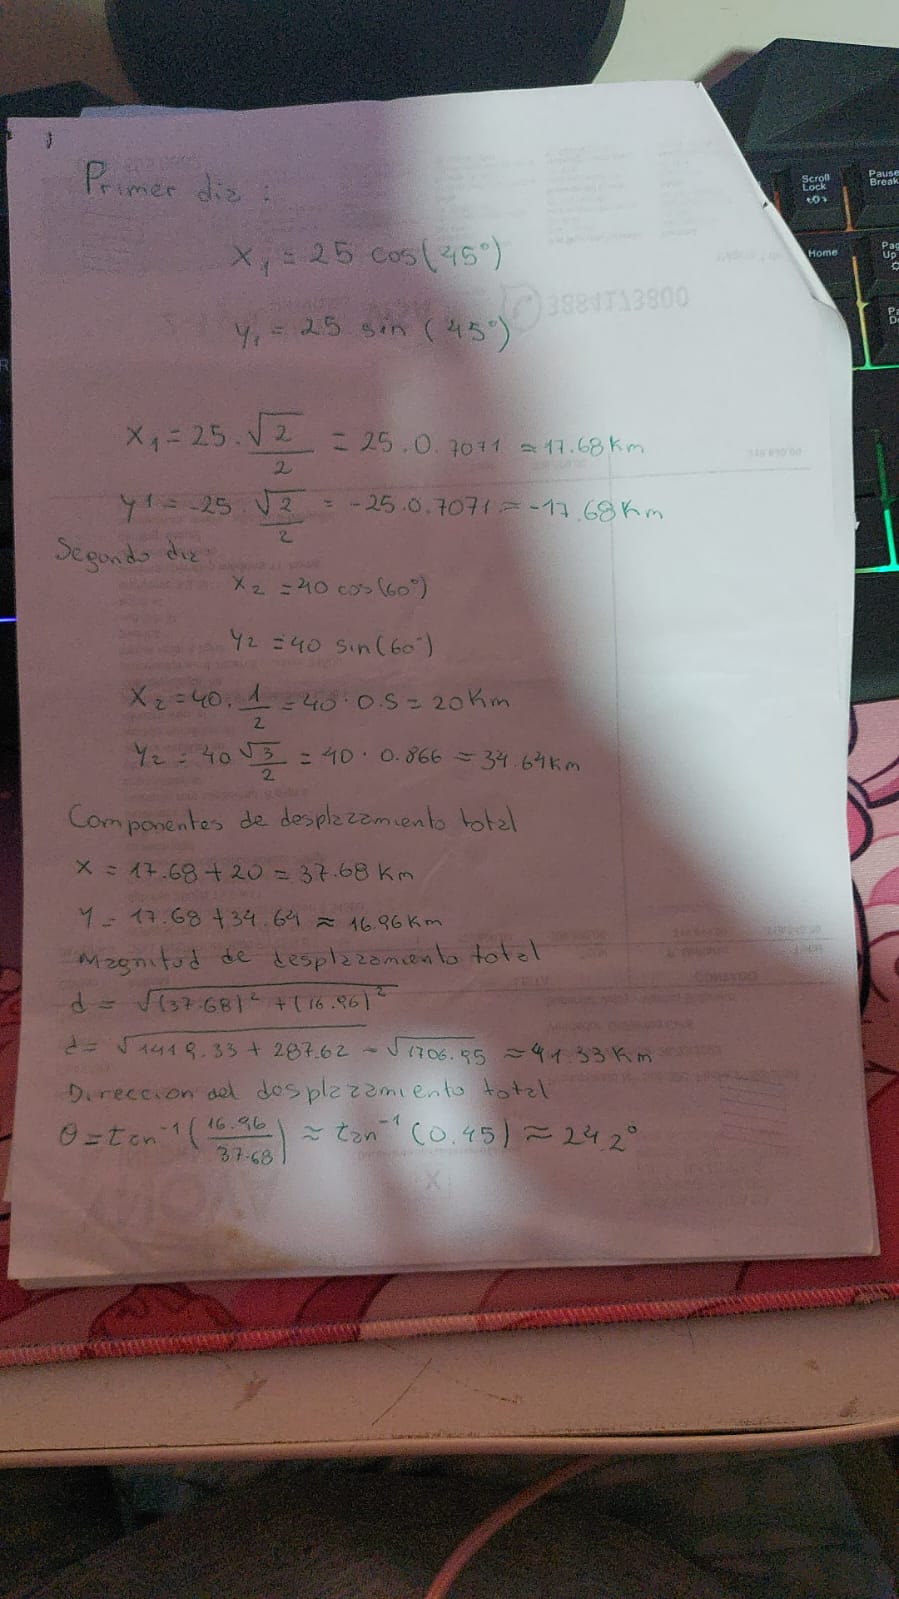 Primer dia :
x₁ = 25 cos(45°)
y₁ = 25 sin (45°)
3884773800
x₁ = 25 . √2/2 = 25 . 0.7071 ≈ 17.68 Km
y1 = -25 √2/2 = -25.0.7071 = -17.68 Km
Segundo dia:
x₂ = 40 cos(60°)
y₂ = 40 sin(60°)
x₂ = 40 . 1/2 = 40 . 0.5 = 20 Km
y₂ = 40 √3/2 = 40 . 0.866 = 34.64 Km
Componentes de desplazamiento total
x = 17.68 + 20 = 37.68 Km
y = 17.68 + 34.64 ≈ 16.96 Km
Magnitud de desplazamiento total
d = √(37.68)² + (16.96)²
d = √1419.33 + 287.62 = √1706.95 ≈ 41.33 Km
Direccion del desplazamiento total
θ = tan⁻¹(16.96/37.68) ≈ tan⁻¹(0.45) ≈ 24.2°
Scroll Lock
Pause Break
Home